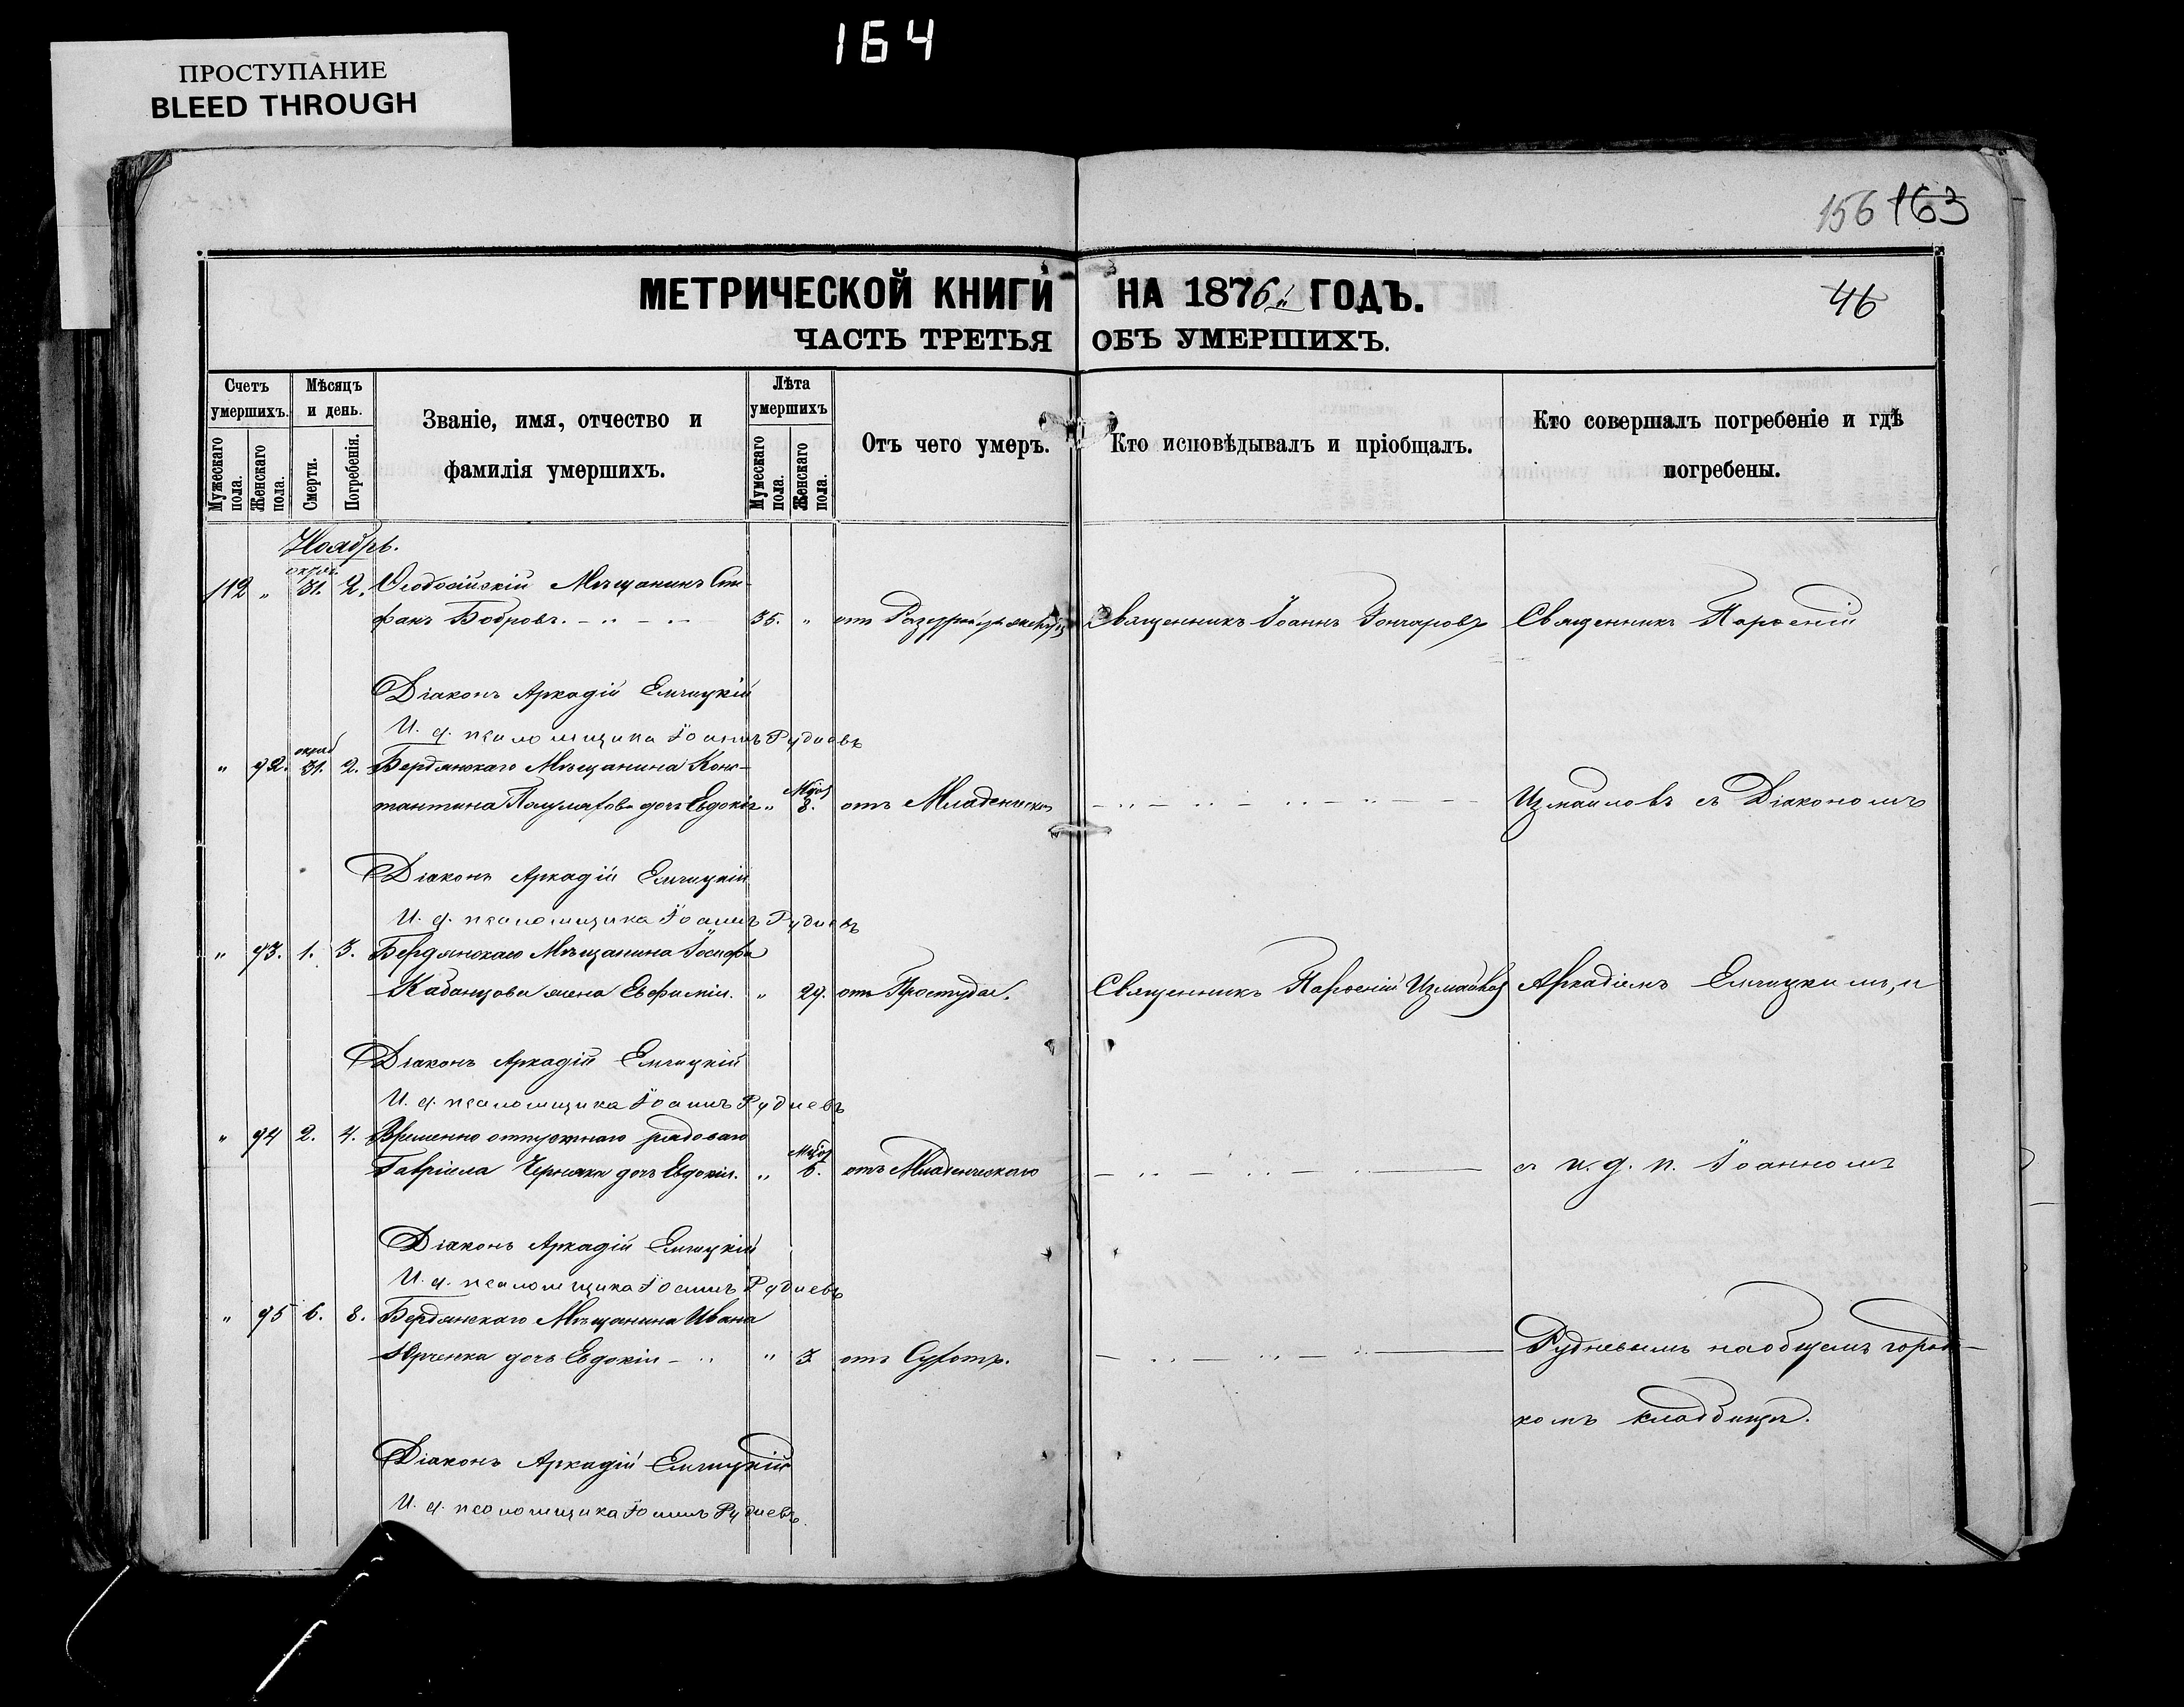 164
ПРОСТУПАНИЕ
BLEED THROUGH
156 163
МЕТРИЧЕСКОЙ КНИГИ НА 1876й ГОДЪ.
46
ЧАСТЬ ТРЕТЬЯ ОБЪ УМЕРШИХЪ.
Счетъ умершихъ.
Мужескаго пола.
Женскаго пола.
Мѣсяцъ и день.
Смерти.
Погребенія.
Званіе, имя, отчество и
фамилія умершихъ.
Лѣта умершихъ
Мужескаго пола.
Женскаго пола.
Отъ чего умеръ.
Кто исповѣдывалъ и пріобщалъ.
Кто совершалъ погребеніе и гдѣ
погребены.
Ноябрь.
112 " 31. 2. Ѳеодосійскій Мѣщанинъ Сте-
фанъ Бобровъ. 35. " отъ Священникъ Іоаннъ Гончаровъ Священникъ Парѳеній
Діаконъ Аркадій Емчицкій
И. д. псаломщика Іоаннъ Рудневъ
" 92. 31. 2. Бердянскаго Мѣщанина Конс-
тантина дочь Евдокія " 8. отъ Младенческ Измаиловъ съ Діакономъ
Діаконъ Аркадій Емчицкій
И. д. псаломщика Іоаннъ Рудневъ
" 93. 1. 3. Бердянскаго Мѣщанина Іосифа
Кабанцова жена Евфимія. " 29. отъ Простуды. Священникъ Парѳеній Измаиловъ Аркадіемъ Емчицкимъ, и
Діаконъ Аркадій Емчицкій
И. д. псаломщика Іоаннъ Рудневъ
" 94 2. 4. Временно отпускнаго рядоваго
Гавріила Черняка дочь Евдокія. " 6. отъ Младенческаго съ и. д. п. Іоанномъ
Діаконъ Аркадій Емчицкій
И. д. псаломщика Іоаннъ Рудневъ
" 95 6. 8. Бердянскаго Мѣщанина Ивана
Юрченка дочь Евдокія " 3. отъ Сухотъ. Рудневымъ на общемъ городс-
комъ кладбищѣ.
Діаконъ Аркадій Емчицкій
И. д. псаломщика Іоаннъ Рудневъ.